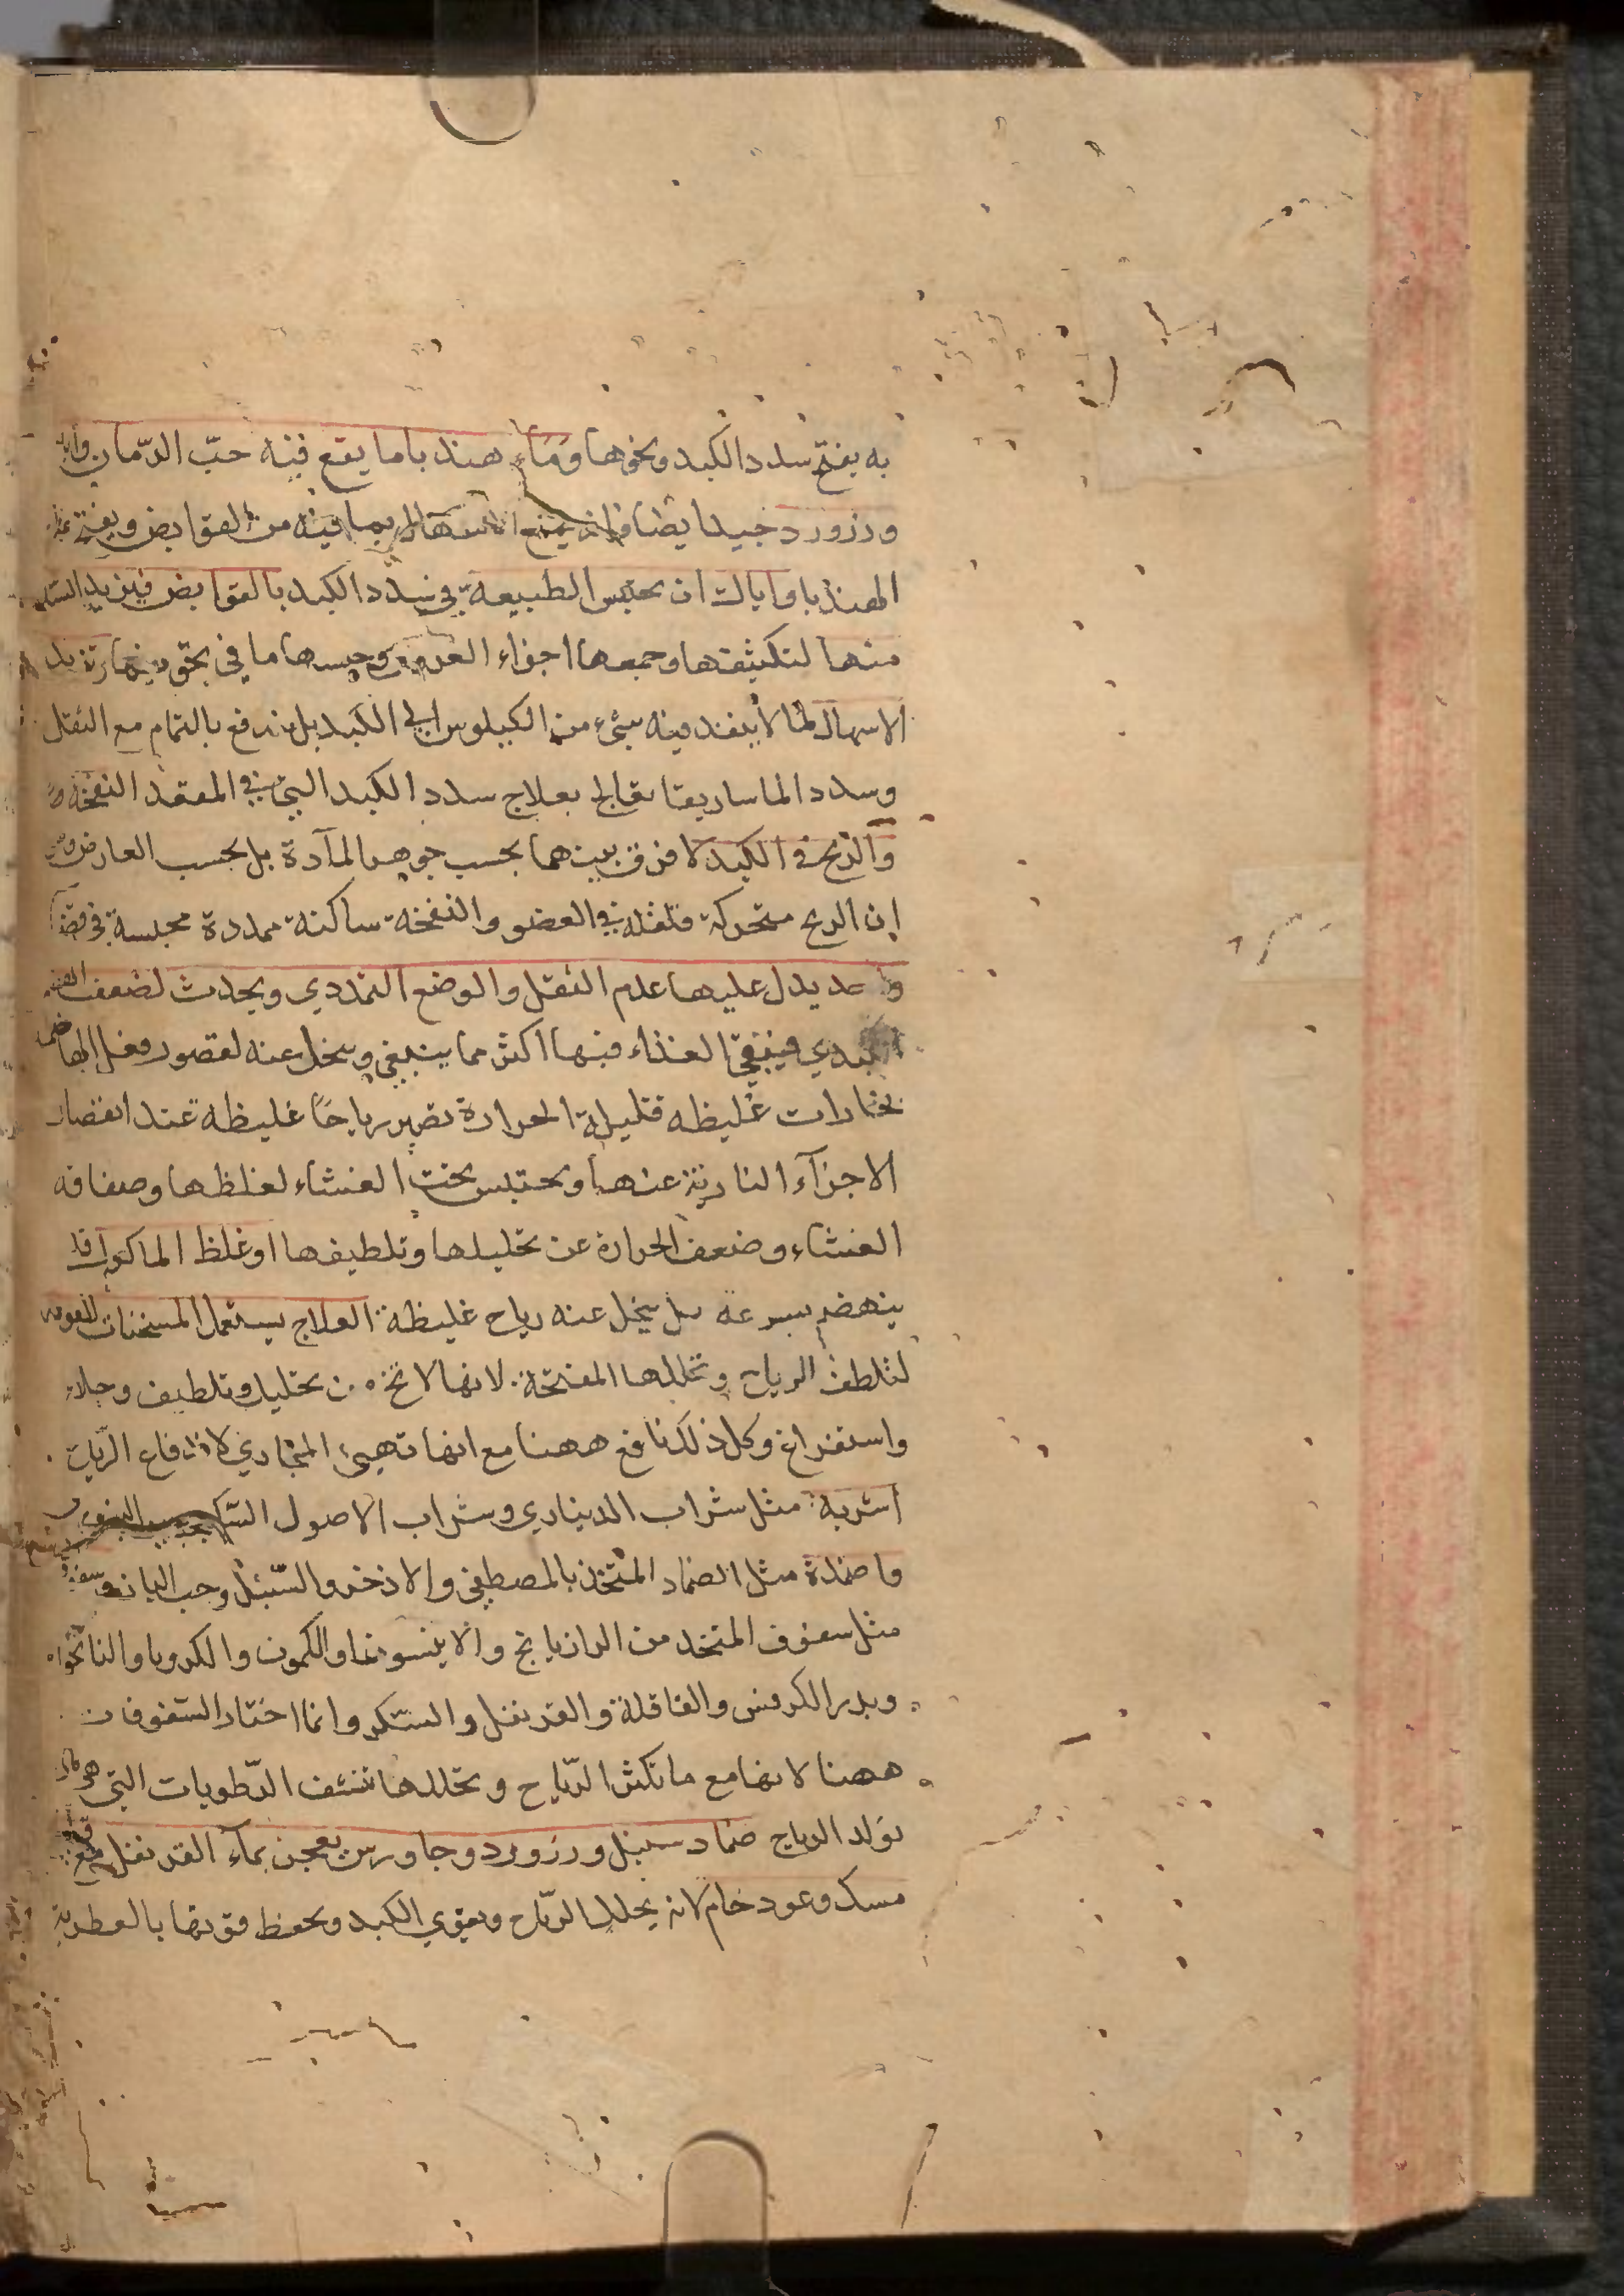 به يفتح سدد الكبد ونحوها وماء هندباما يقع فيه حبّ الرّمان
وزرورد جيد ايضا فانه يمنع الاسهال بما فيه من القوابض ويفتح
الهندبا واياك ان تحبس الطبيعة في سدد الكبد بالقوابض فيزيد السدد
منها لتكثيفها وجمعها اجزاء العروق وحبسها ما في تجويفها
الاسهال لما لا ينفذ فيه شيء من الكيلوس الى الكبد بل يندفع بالتمام مع الثفل
وسدد الماساريقا تعالج بعلاج سدد الكبد التي في المقعر النفخة
والريح في الكبد لا فرق بينهما بحسب جوهر المآدة بل بحسب العارض
ان الريح متحركة مقلقلة في العضو والنفخة ساكنة ممددة محتبسة في موضع
واحد يدل عليها عدم الثقل والوجع التمددي ويحدث لضعف الهضم
الكبدي فيبقى الغذاء فيها اكثر مما ينبغي ويتحلل عنه لقصور فعل الهاضمة
بخارات غليظه قليلة الحرارة تصير رياحًا غليظه عند انفصال
الاجزآء النارية عنها وتحتبس تحت الغشاء لغلظها وصفاقه
الغشاء وضعف الحرارة عن تحليلها وتلطيفها او غلظ الماكول فلا
ينهضم بسرعة بل يتحلل عنه رياح غليظة العلاج يستعمل المسخنات القويه
لتلطف الرياح وتحللها المفتحة لانها لا تخ من تحليل وتلطيف وجلاء
واستفراغ وكل ذلك نافع ههنا مع انها تهيئ المجاري لاندفاع الرياح
اشربة مثل شراب الديناري وشراب الاصول السكنجبين البزوري
واضمدة مثل الضماد المتخذ بالمصطكى والاذخر والسّنبل وحب البان وسفوف
مثل سفوف المتخذ من الرازيانج والانيسون والكمون والكرويا والنانخواه
وبزر الكرفس والقاقلة والقرنفل والسّكر وانما اختار السّفوفات
ههنا لانها مع ما تكسر الرّياح وتحللها تنشف الرّطوبات التي هي مادة
تولد الرياح ضماد سنبل وزرورد وجاورس يعجن بمآء القرنفل مع قليل
مسك وعود خام لانه يحلل الرّياح ويقوي الكبد ويحفظ قوتها بالعطرية